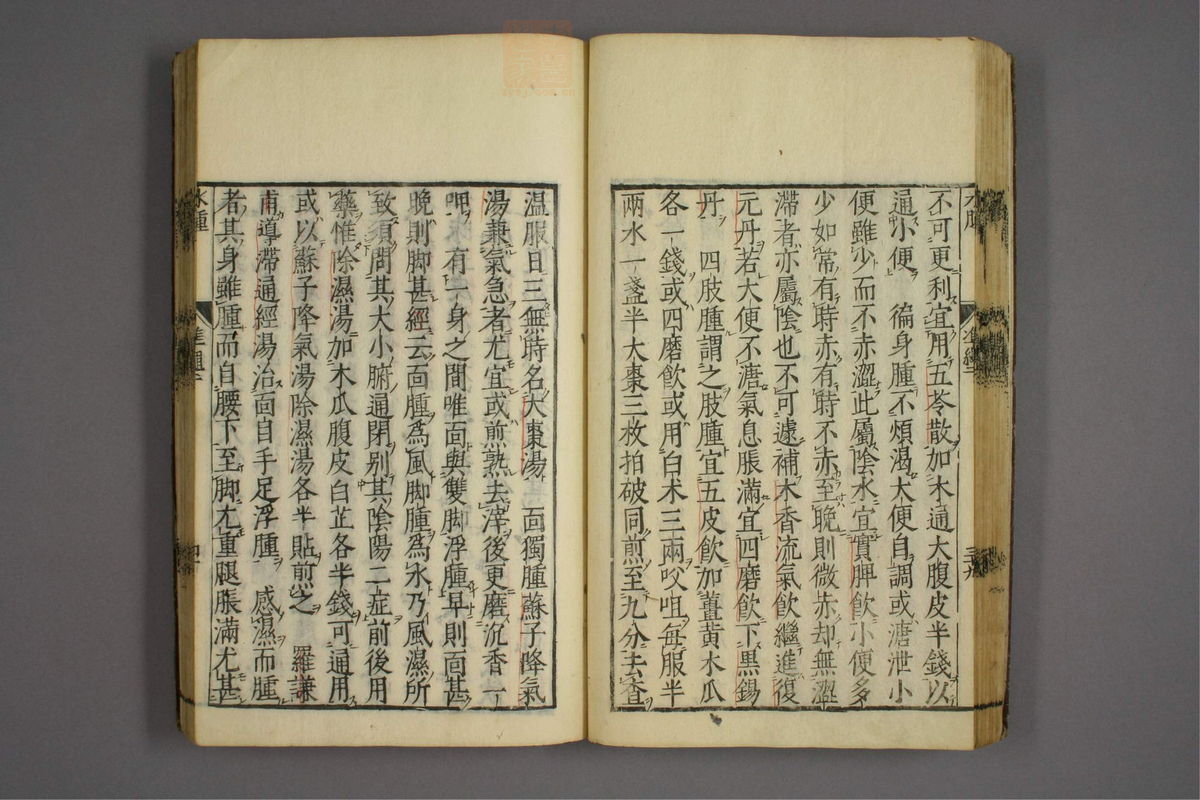 不可更利宜用五苓散加木通大腹皮半錢以
通小便　徧身腫不煩渴大便自調或溏泄小
便雖少而不赤澀此屬陰水宜實脾飲小便多
少如常有時赤有時不赤至晚則微赤却無澀
滯者亦屬陰也不可遽補木香流氣飲繼進復
元丹若大便不溏氣息脹滿宜四磨飲下黒錫
丹　四肢腫謂之肢腫宜五皮飲加薑黄木瓜
各一錢或四磨飲或用白术三兩㕮咀每服半
兩水一盞半大棗三枚拍破同煎至九分去查
温服日三無時名大棗湯　面獨腫蘇子降氣
湯兼氣急者尤宜或煎熟去滓後更磨沉香一
呷　有一身之間唯面與雙脚浮腫早則面甚
晚則脚甚經云面腫為風脚腫為水乃風濕所
致須問其大小腑通閉别其陰陽二症前後用
藥惟除濕湯加木瓜腹皮白芷各半錢可通用
或以蘇子降氣湯除濕湯各半貼煎之　羅謙
甫導滯通經湯治面目手足浮腫　感濕而腫
者其身雖腫而自腰下至脚尤重腿脹滿尤甚
水腫